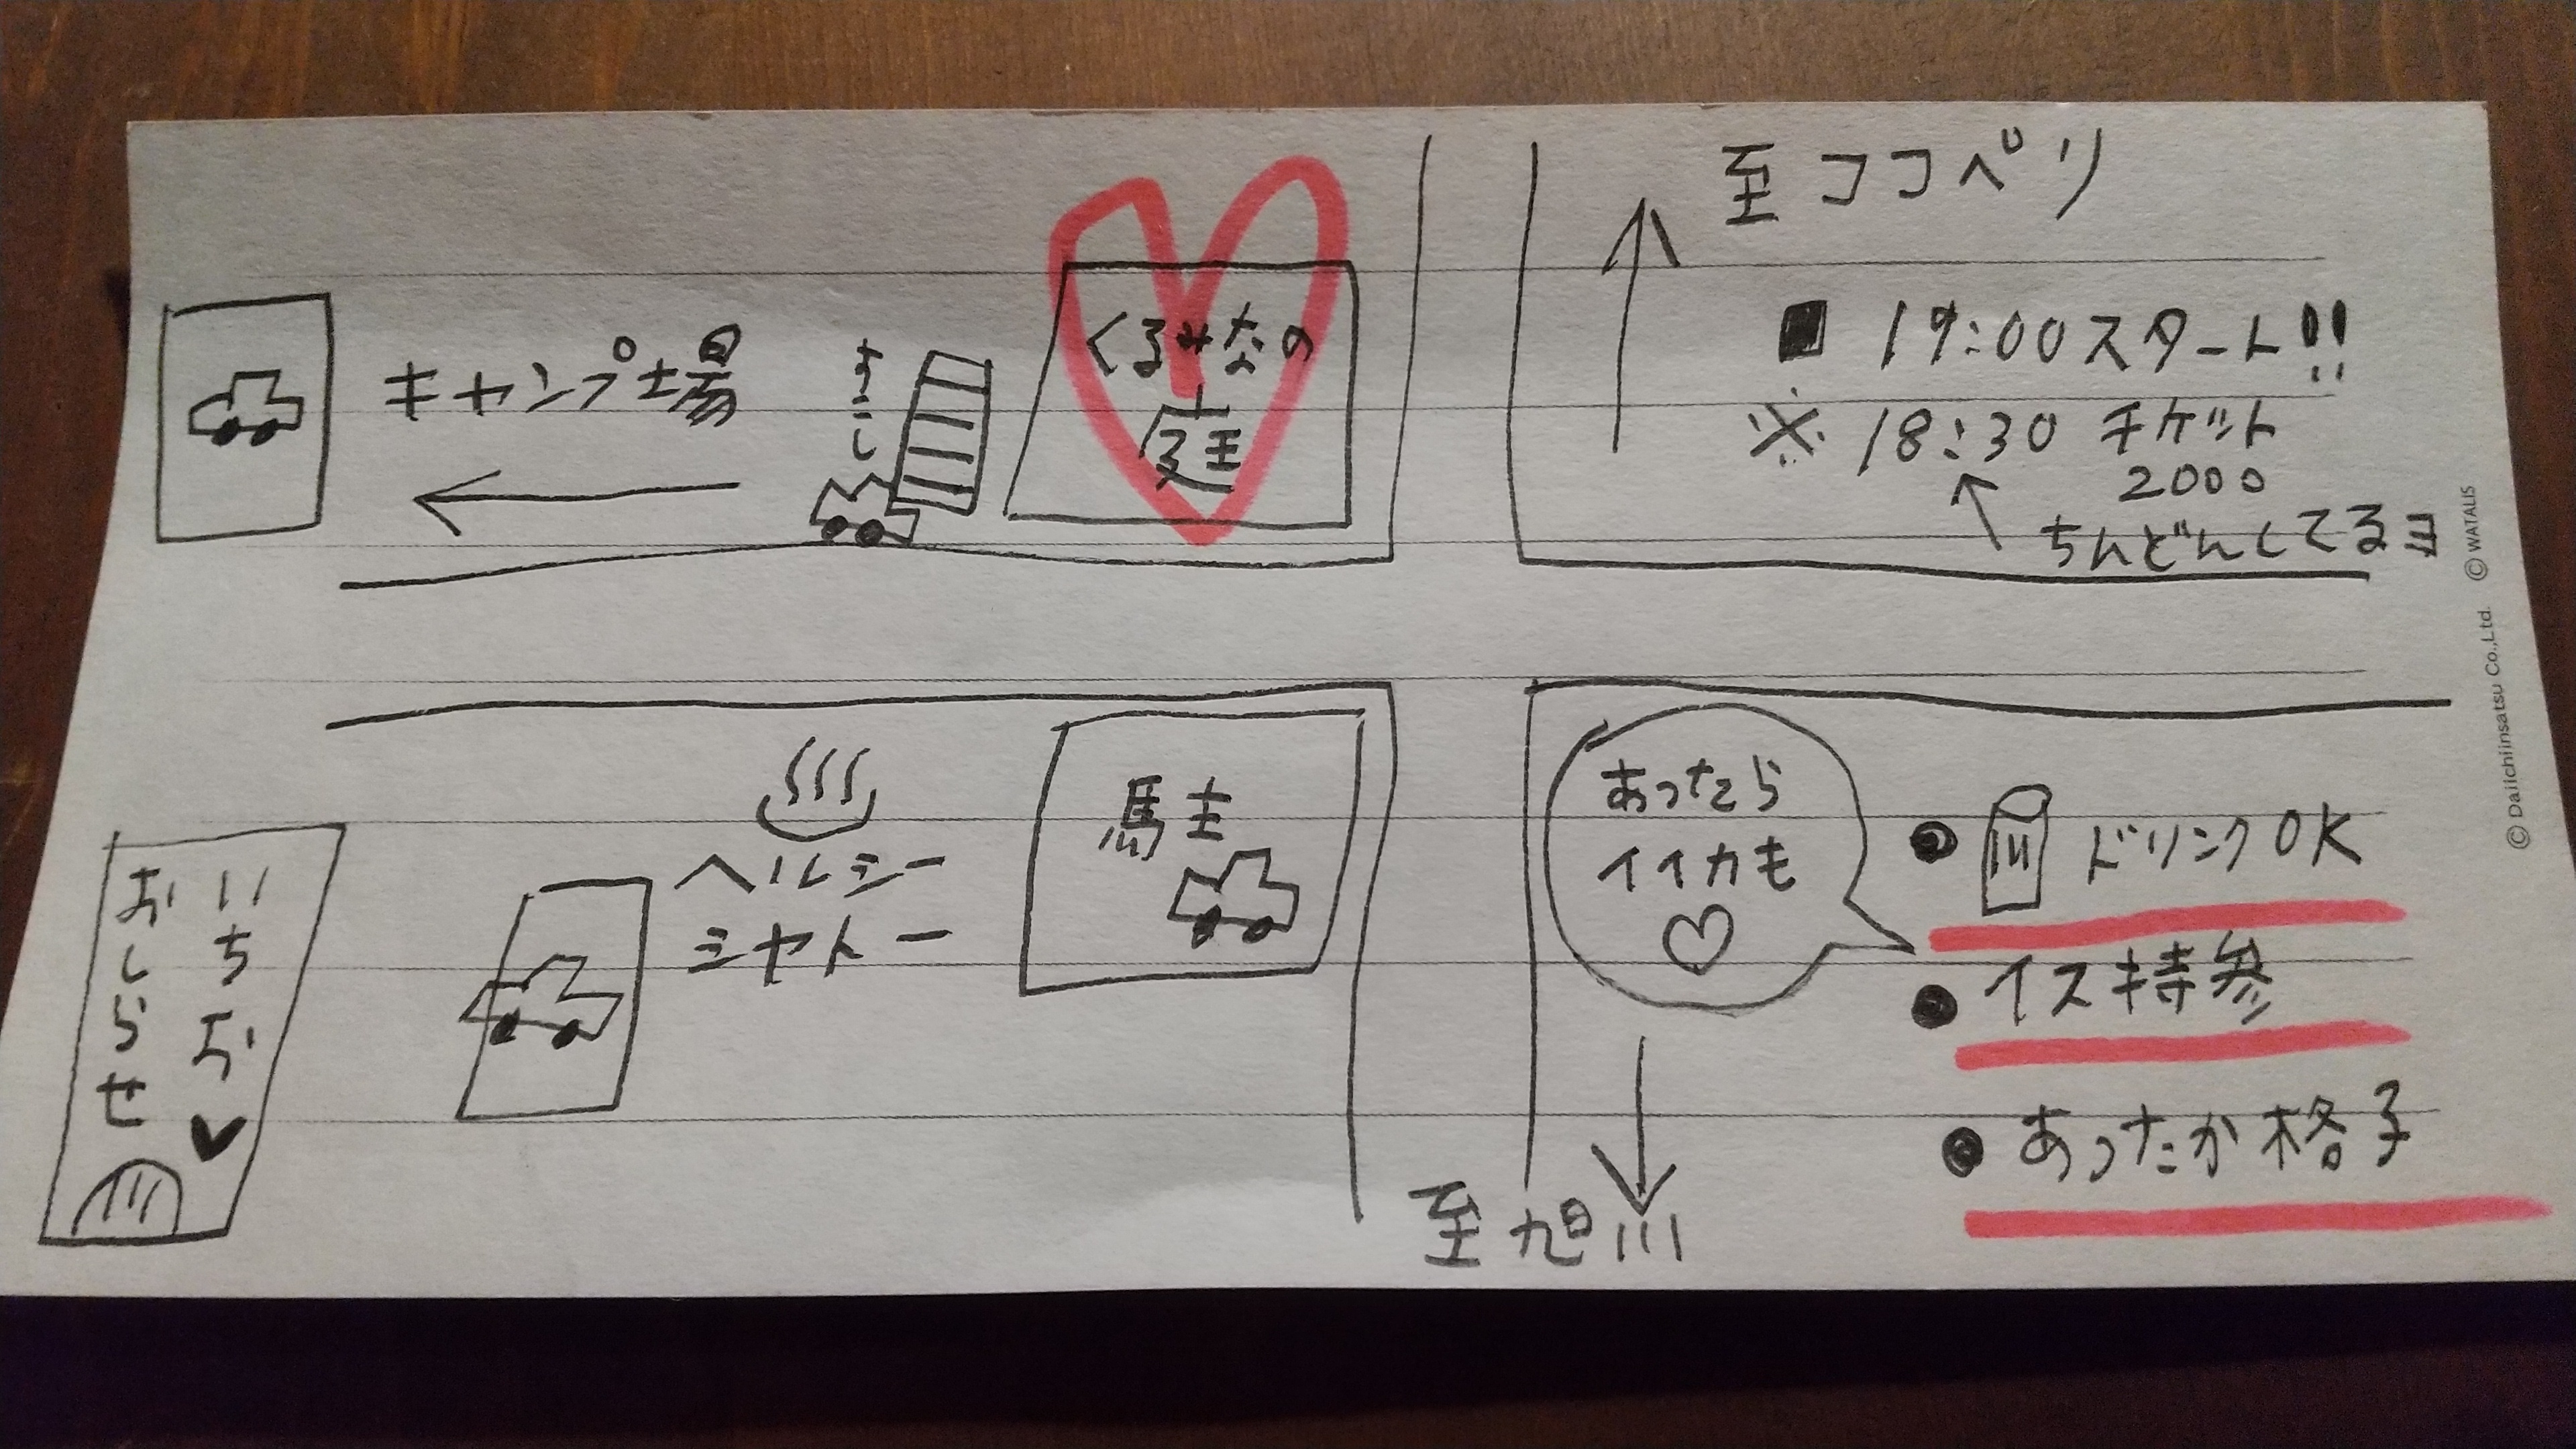 至ココペリ
■ 19:00スタート!!
※ 18:30 チケット
2000
↑ちんどんしてるヨ
くるみなの
庭
すこし
キャンプ場
←
ヘルシー
シャトー
あったら
イイカモ
♡
● ドリンクOK
● イス持参
● あったか格子
至旭川
いちお
おしらせ
© Daiichiinsatsu Co.,Ltd. © WATALIS